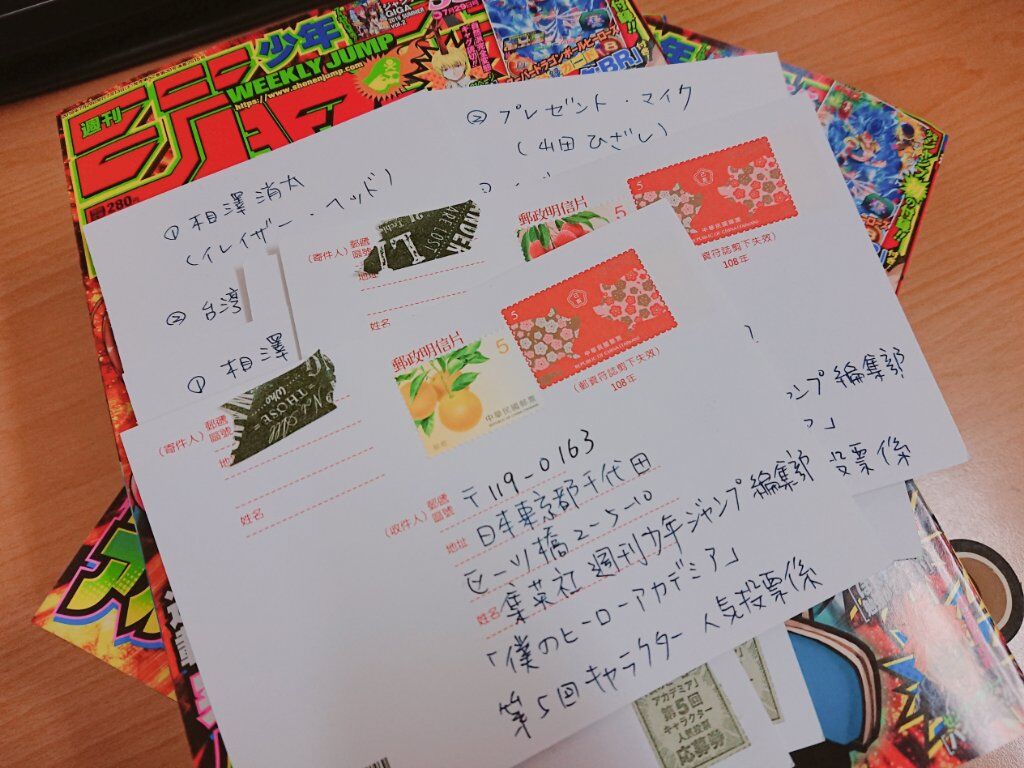 週刊
少年
WEEKLY JUMP
https://www.shonenjump.com
GIGA
2019 SUMMER
7月29日
280円
② プレゼント・マイク
(山田 ひざし)
① 相澤消太
(イレイザー・ヘッド)
② 台湾
① 相澤
(寄件人) 郵遞
區號
地址
姓名
郵政明信片
5
5
REPUBLIC OF CHINA (TAIWAN)
資符誌剪下失效)
108年
ンプ 編集部
」
投票係
(寄件人) 郵遞
區號
地
姓名
THOSE
Who
郵政明信片
5
中華民國郵票
5
中華民國郵票
REPUBLIC OF CHINA (TAIWAN)
(郵資符誌剪下失效)
108年
(收件人) 郵遞
區號
〒119-0163
地址
日本東京都千代田
区一ツ橋2-5-10
姓名
集英社 週刊少年ジャンプ 編集部
「僕のヒーローアカデミア」
第5回 キャラクター 人気投票係
アカデミア』
第5回
キャラクター
人気投票
応募券